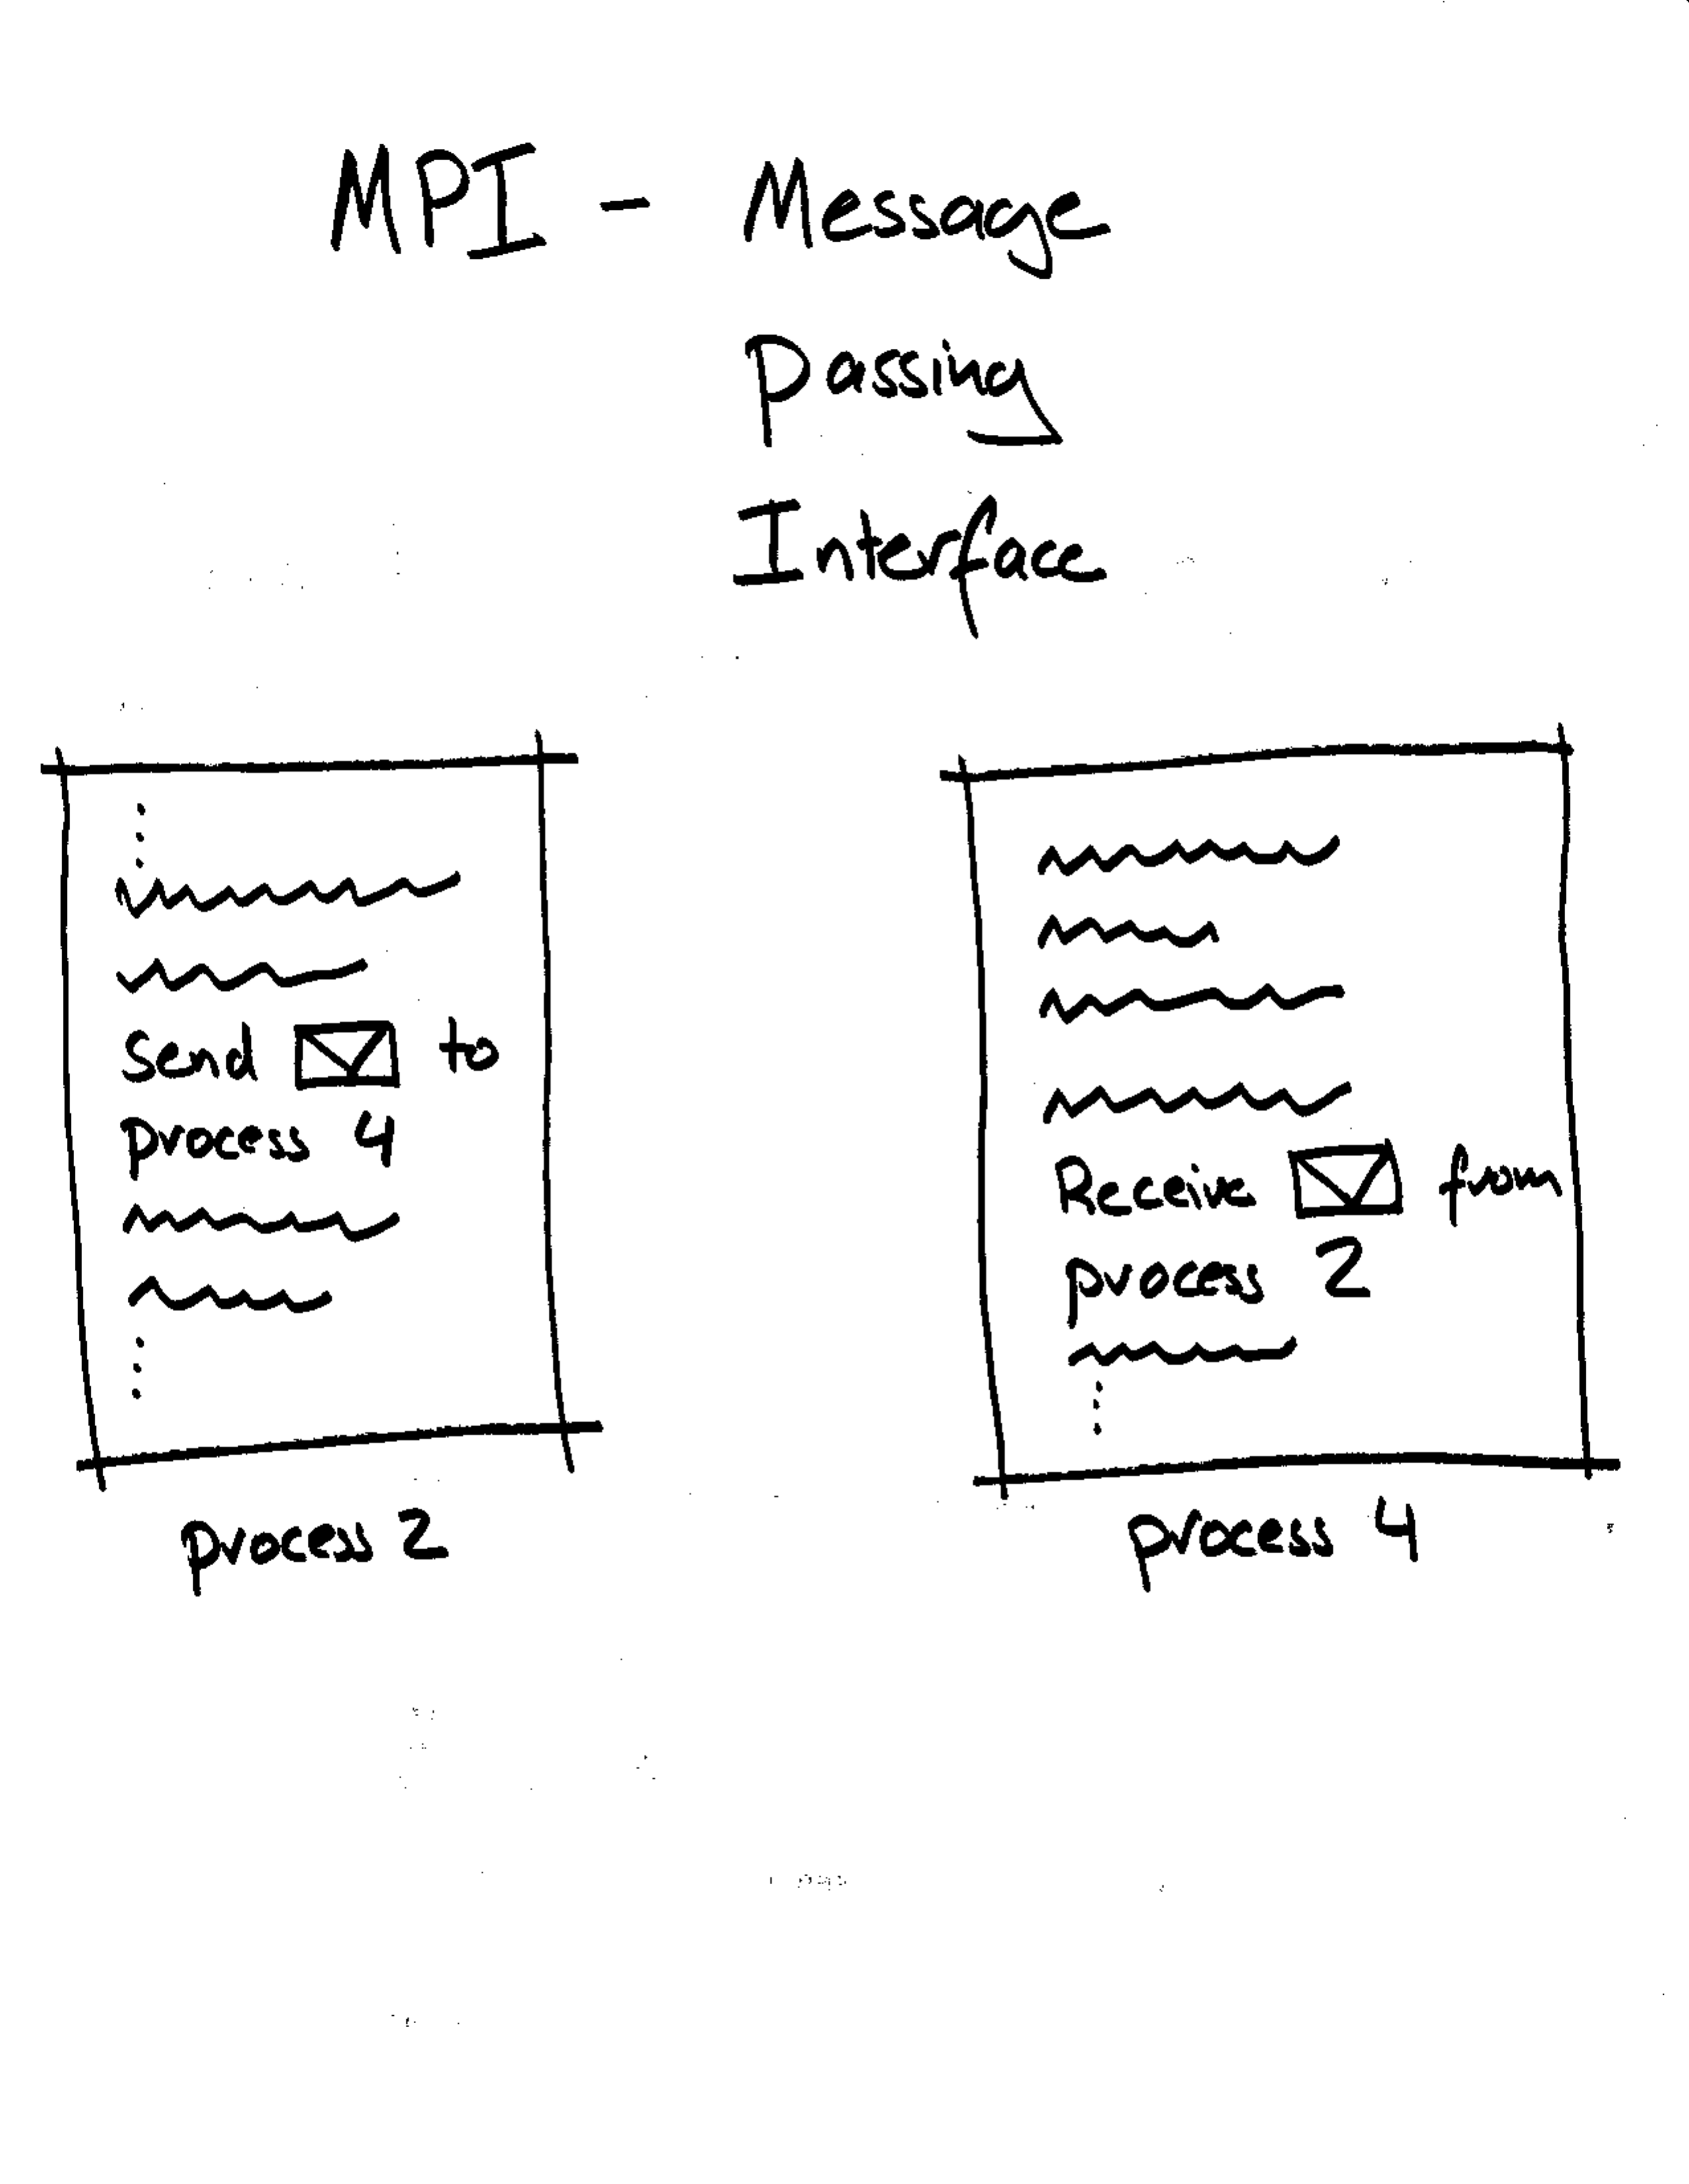 MPI - Message
Passing
Interface
Send to
process 4
process 2
Receive from
process 2
process 4